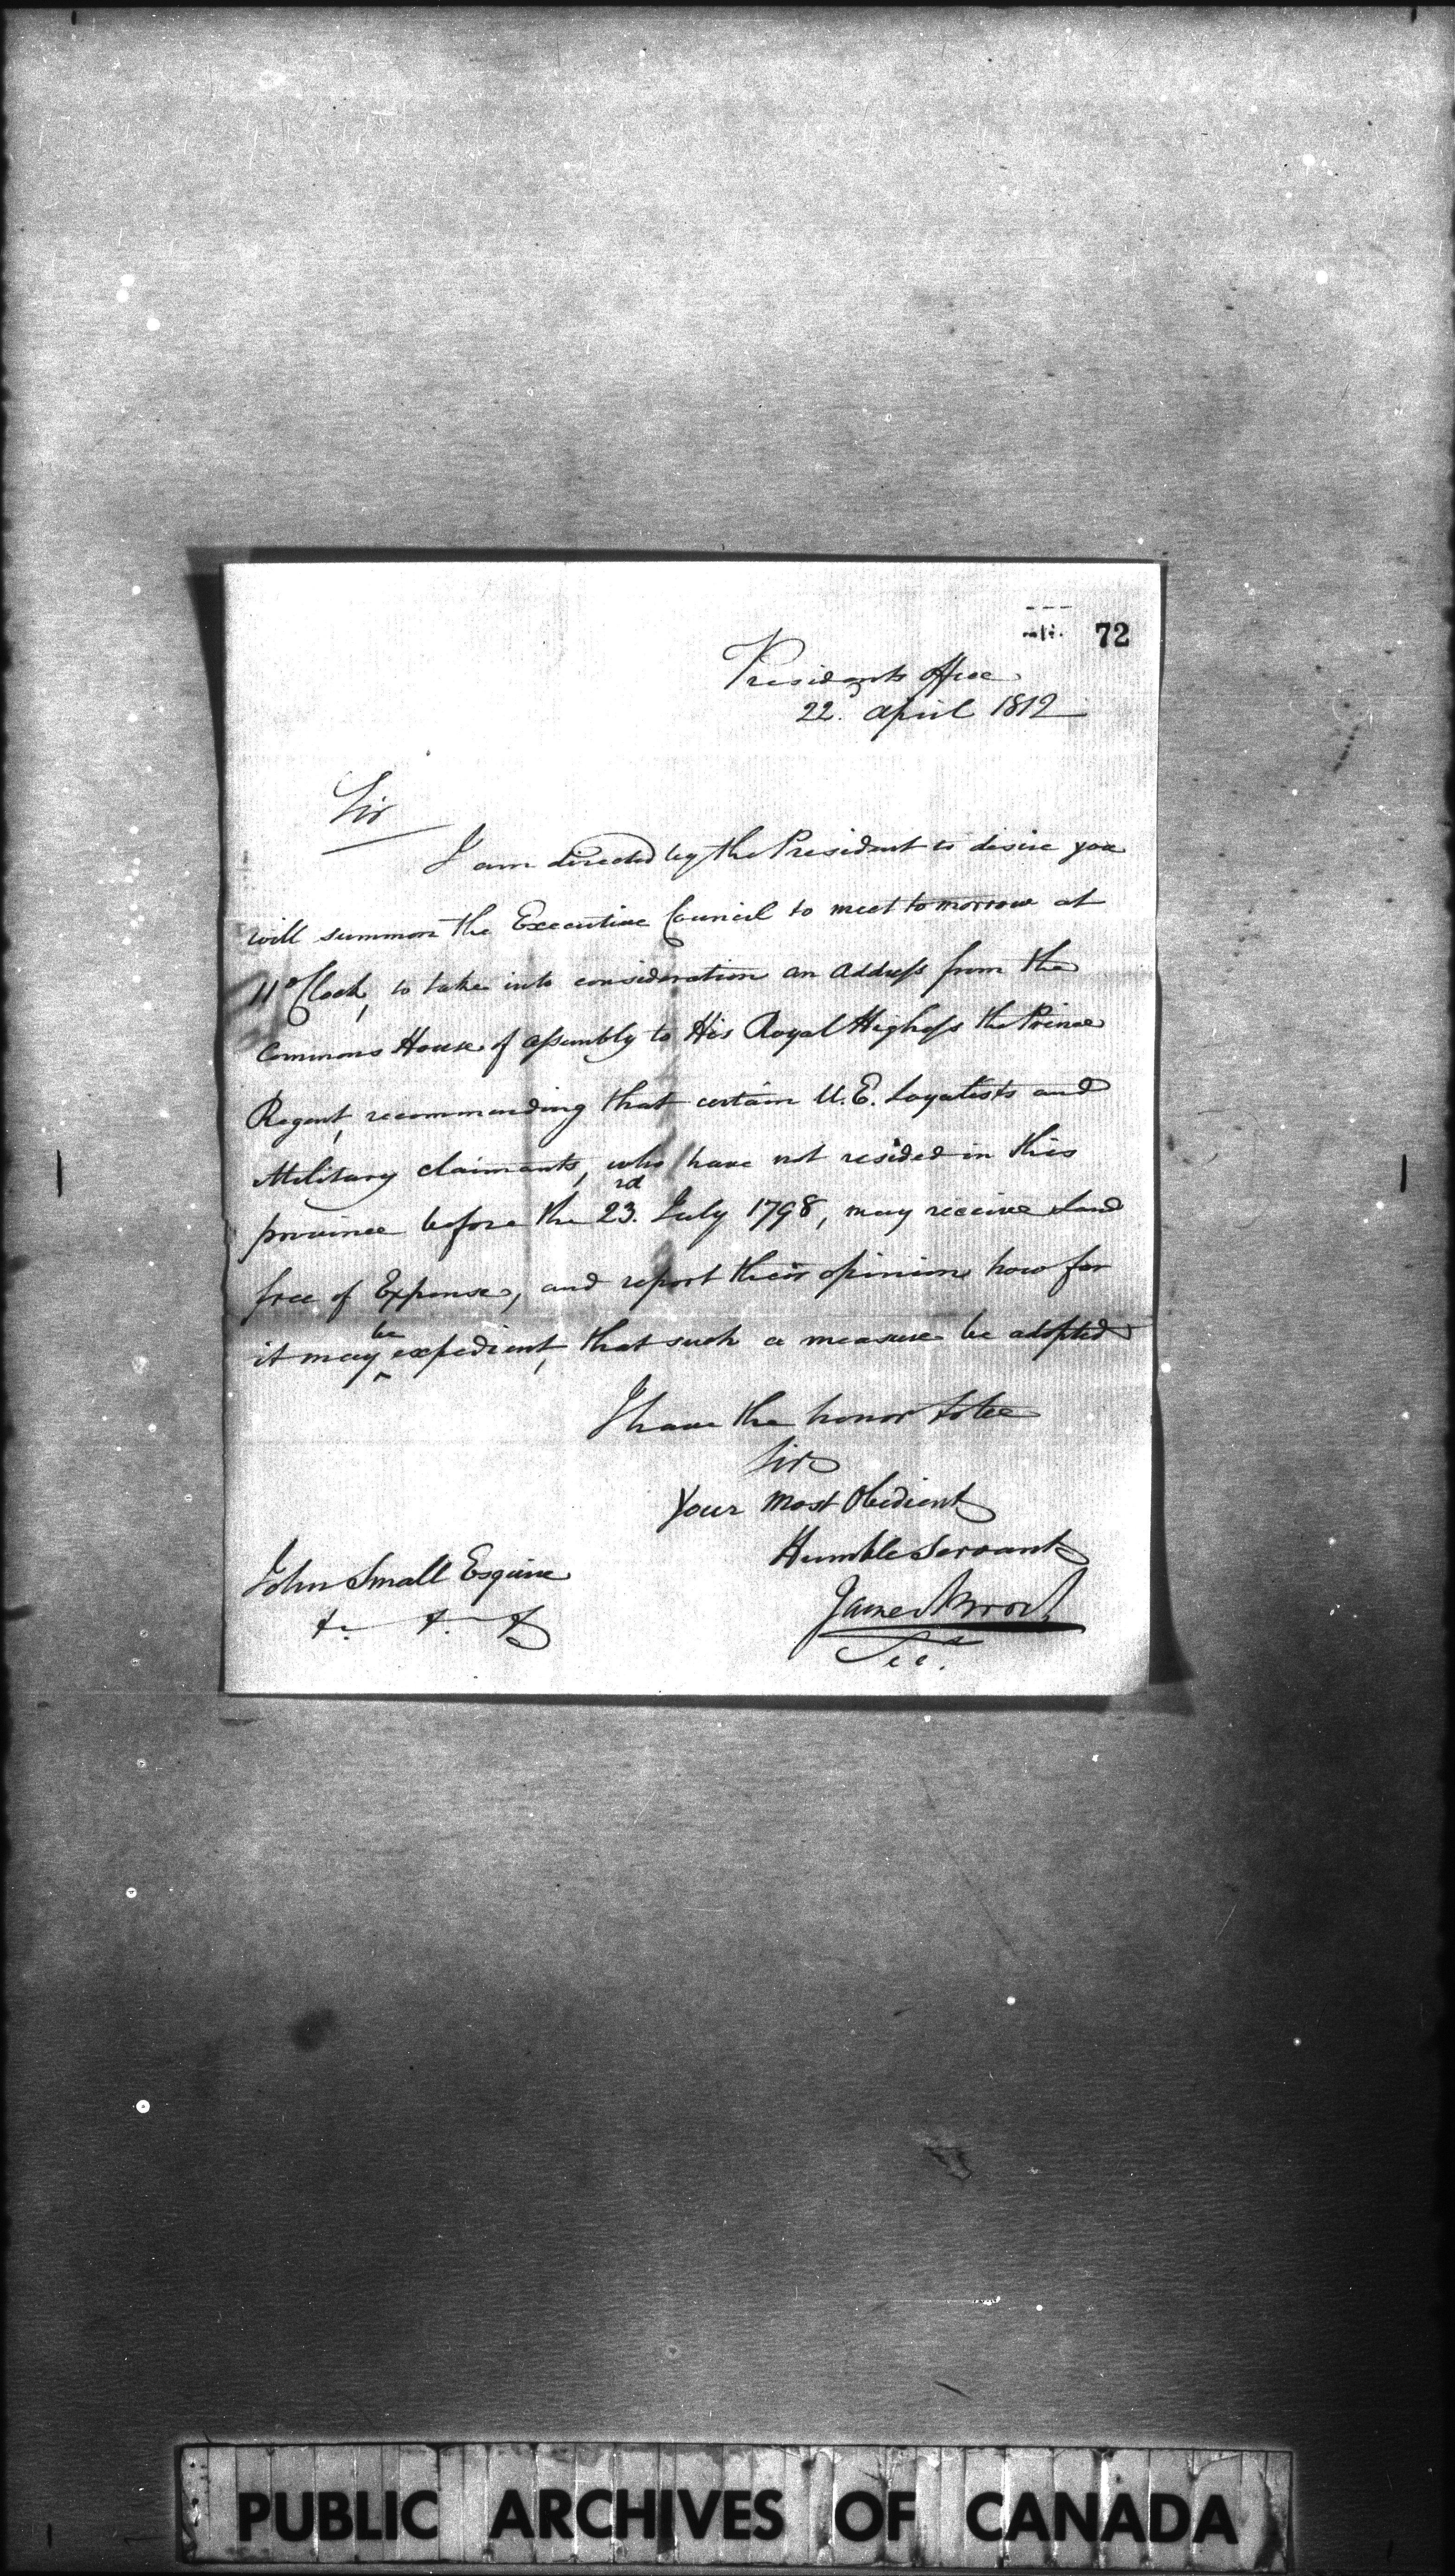 72
Presidents Office
22nd April 1812
Sir
I am directed by the President to desire you
will summon the Executive Council to meet tomorrow at
11 oClock, to take into consideration an Address from the
Commons House of Assembly to His Royal Highess the Prince
Regent, recommending that certain U.E. Loyalists and
Military claimants, who have not resided in this
province before the 23rd July 1798, may receive Land
free of Expense, and report their opinion how far
it may be expedient, that such a measure be adopted
I have the honor to be
Sir
Your most Obedient
Humble Servant
James Brock
Secy.
John Small Esquire
&. &. &
PUBLIC ARCHIVES OF CANADA